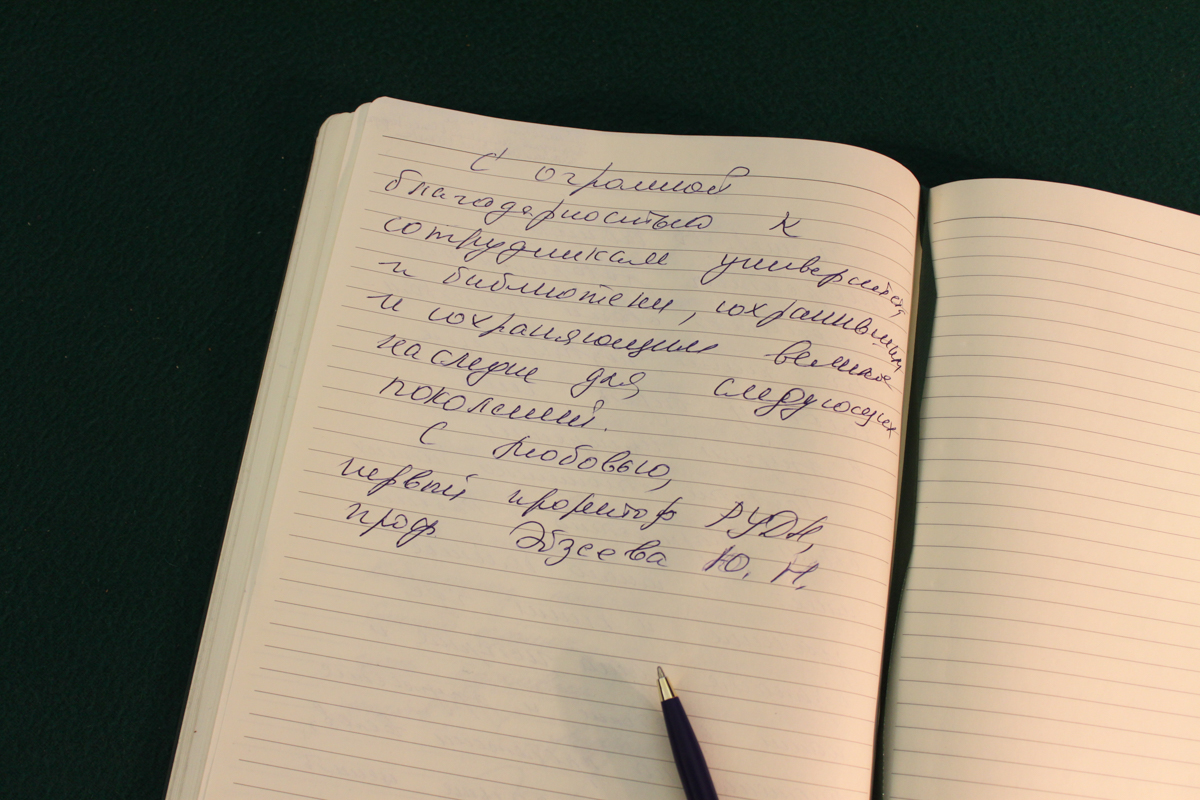 С огромной
благодарностью к
сотрудникам университета
и библиотеки, сохранившим
и сохраняющим великое
наследие для следующих
поколений.
С любовью,
первый проректор РУДН,
проф Эбзеева Ю. Н.